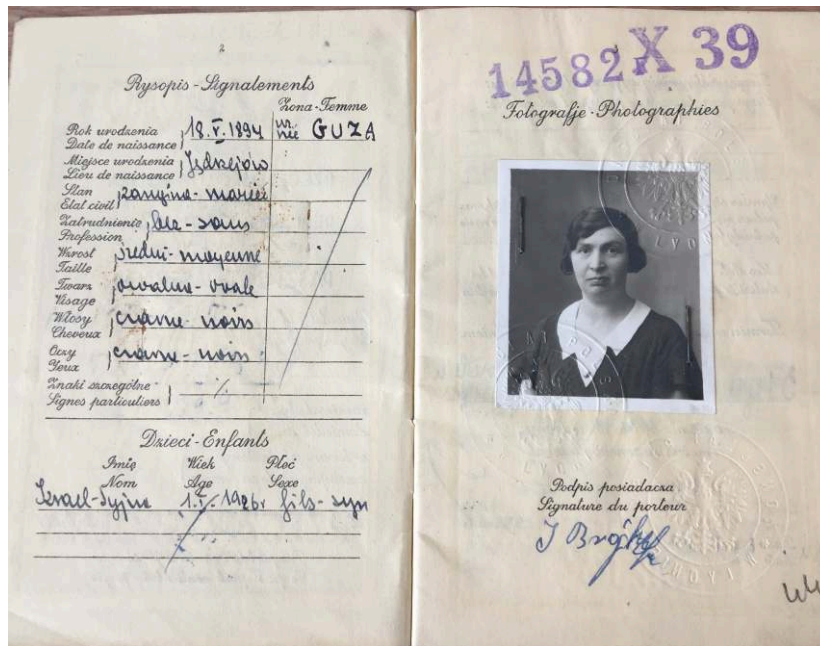 2
Rysopis - Signalements
Żona - Femme
Rok urodzenia
Date de naissance
18.V.1894
ur.
née GUZA
Miejsce urodzenia
Lieu de naissance
Jędrzejów
Stan
Etat civil
zamężna - mariée
Zatrudnienie
Profession
bez - sans
Wzrost
Taille
średni - moyenne
Twarz
Visage
owalna - ovale
Włosy
Cheveux
czarne - noirs
Oczy
Yeux
czarne - noirs
Znaki szczególne
Signes particuliers
Dzieci - Enfants
Imię Wiek Płeć
Nom Age Sexe
1926r fils - syn
14582 X 39
Fotografje - Photographies
Podpis posiadacza
Signature du porteur